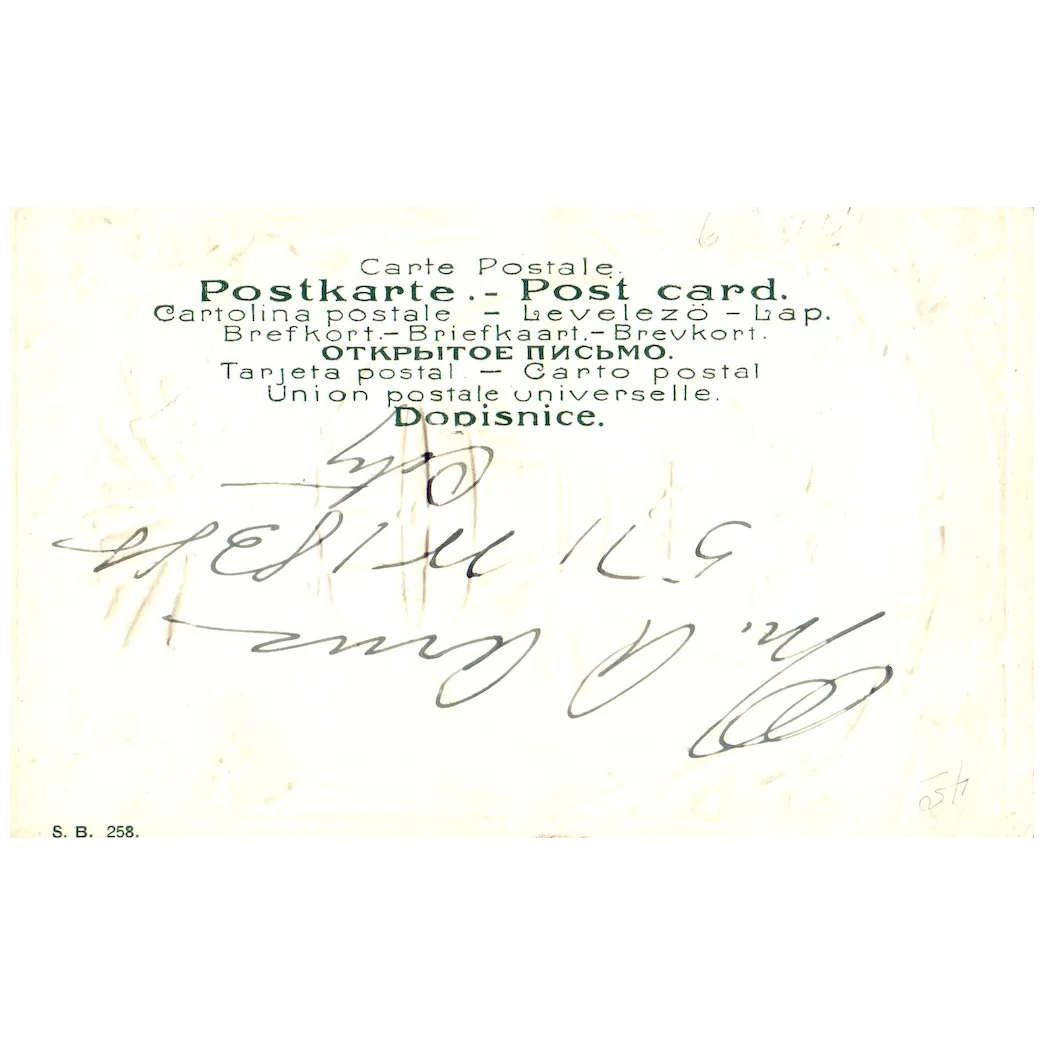 Carte Postale.
Postkarte.- Post card.
Cartolina postale - Levelezö - Lap.
Brefkort.- Briefkaart.- Brevkort.
ОТКРЫТОЕ ПИСЬМО.
Tarjeta postal - Carto postal
Union postale universelle.
Dopisnice.
571 W 183 St
City
S. B. 258.